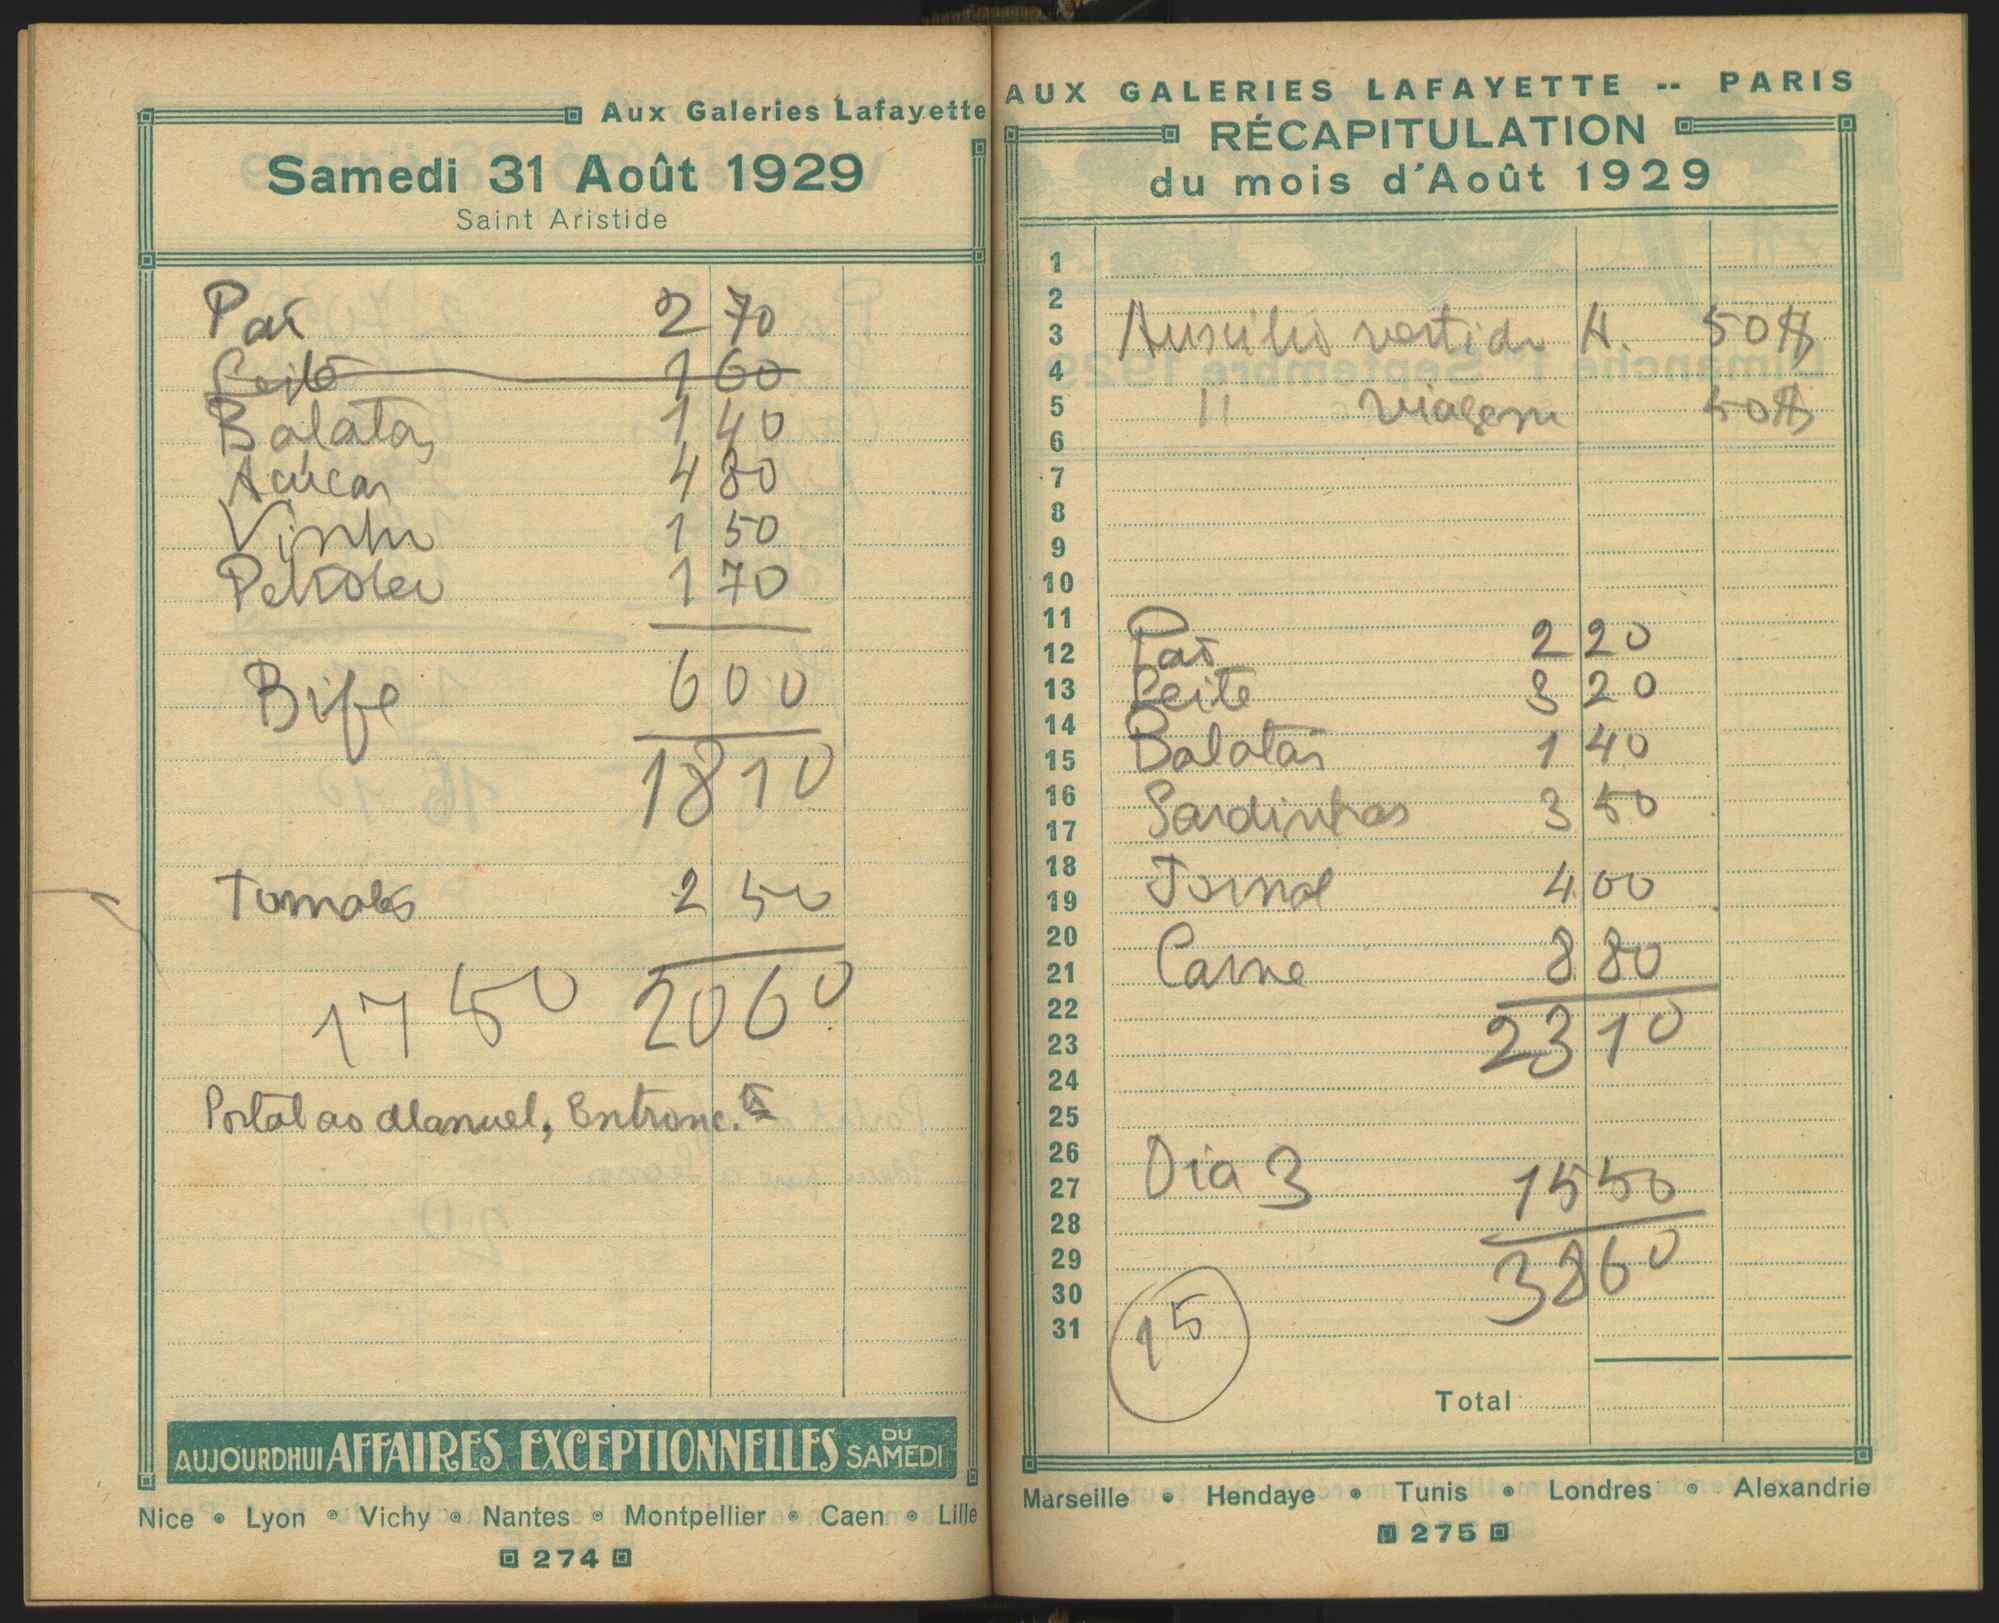 Aux Galeries Lafayette
Samedi 31 Août 1929
Saint Aristide
Pão 2 70
Leite 1 60
Batatas 1 40
Açúcar 4 80
Vinho 1 50
Petroleo 1 70
Bife 6 00
18 10
Tomates 2 50
17 50 20 60
Postal ao Manuel, Entronc.
AUJOURDHUI AFFAIRES EXCEPTIONNELLES DU SAMEDI
Nice • Lyon • Vichy • Nantes • Montpellier • Caen • Lille
274
AUX GALERIES LAFAYETTE -- PARIS
RÉCAPITULATION
du mois d'Août 1929
1
2
3 Auxilio vestido H. 50$
4
5 " viagem 50$
6
7
8
9
10
11
12 Pão 2 20
13 Leite 3 20
14
15 Batatas 1 40
16
17 Sardinhas 3 50
18
19 Jornal 4 00
20
21 Carne 8 80
22
23 23 10
24
25
26
27 Dia 3 15 50
28
29 38 60
30
31 15
Total
Marseille • Hendaye • Tunis • Londres • Alexandrie
275